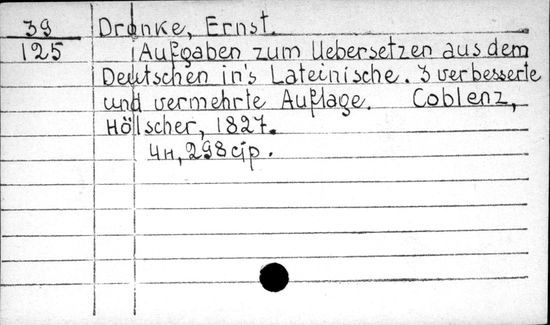 39
125
Dronke, Ernst.
Aufgaben zum Uebersetzen aus dem
Deutschen in's Lateinische. 3 verbesserte
und vermehrte Auflage. Coblenz,
Hölscher, 1827.
4н, 298 cjp.